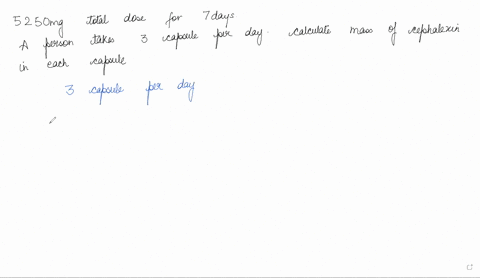 5250mg total dose for 7days
A person takes 3 capsule per day. calculate mass of cephalexin
in each capsule
3 capsule per day